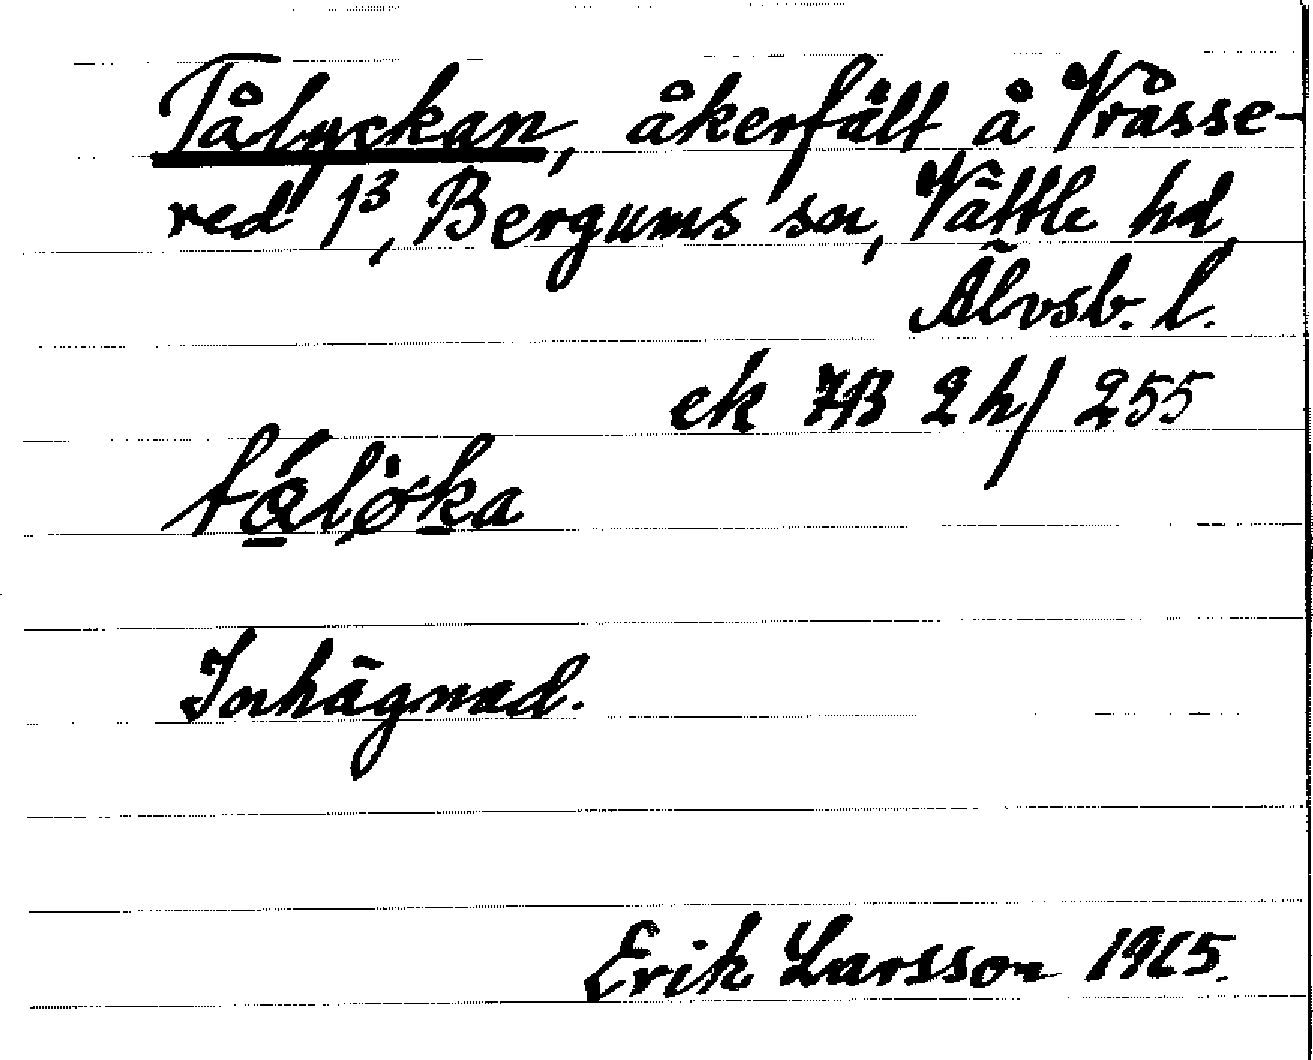 Tålyckan, åkerfält å Vråsse-
red 1³, Bergums sn, Vättle hd,
Älvsb. l.
ek 7B 2h/ 255
Inhägnad.
Erik Larsson 1965.